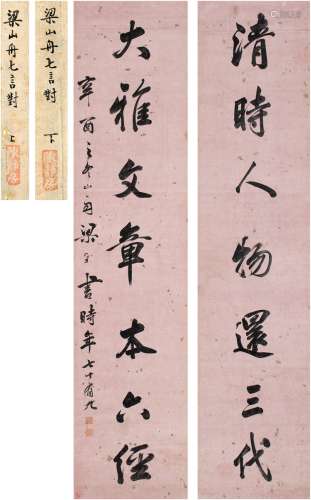 清時人物還三代
大雅文章本六經
辛酉之冬山舟梁同書時年七十有九
梁山舟七言對 上
梁山舟七言對 下